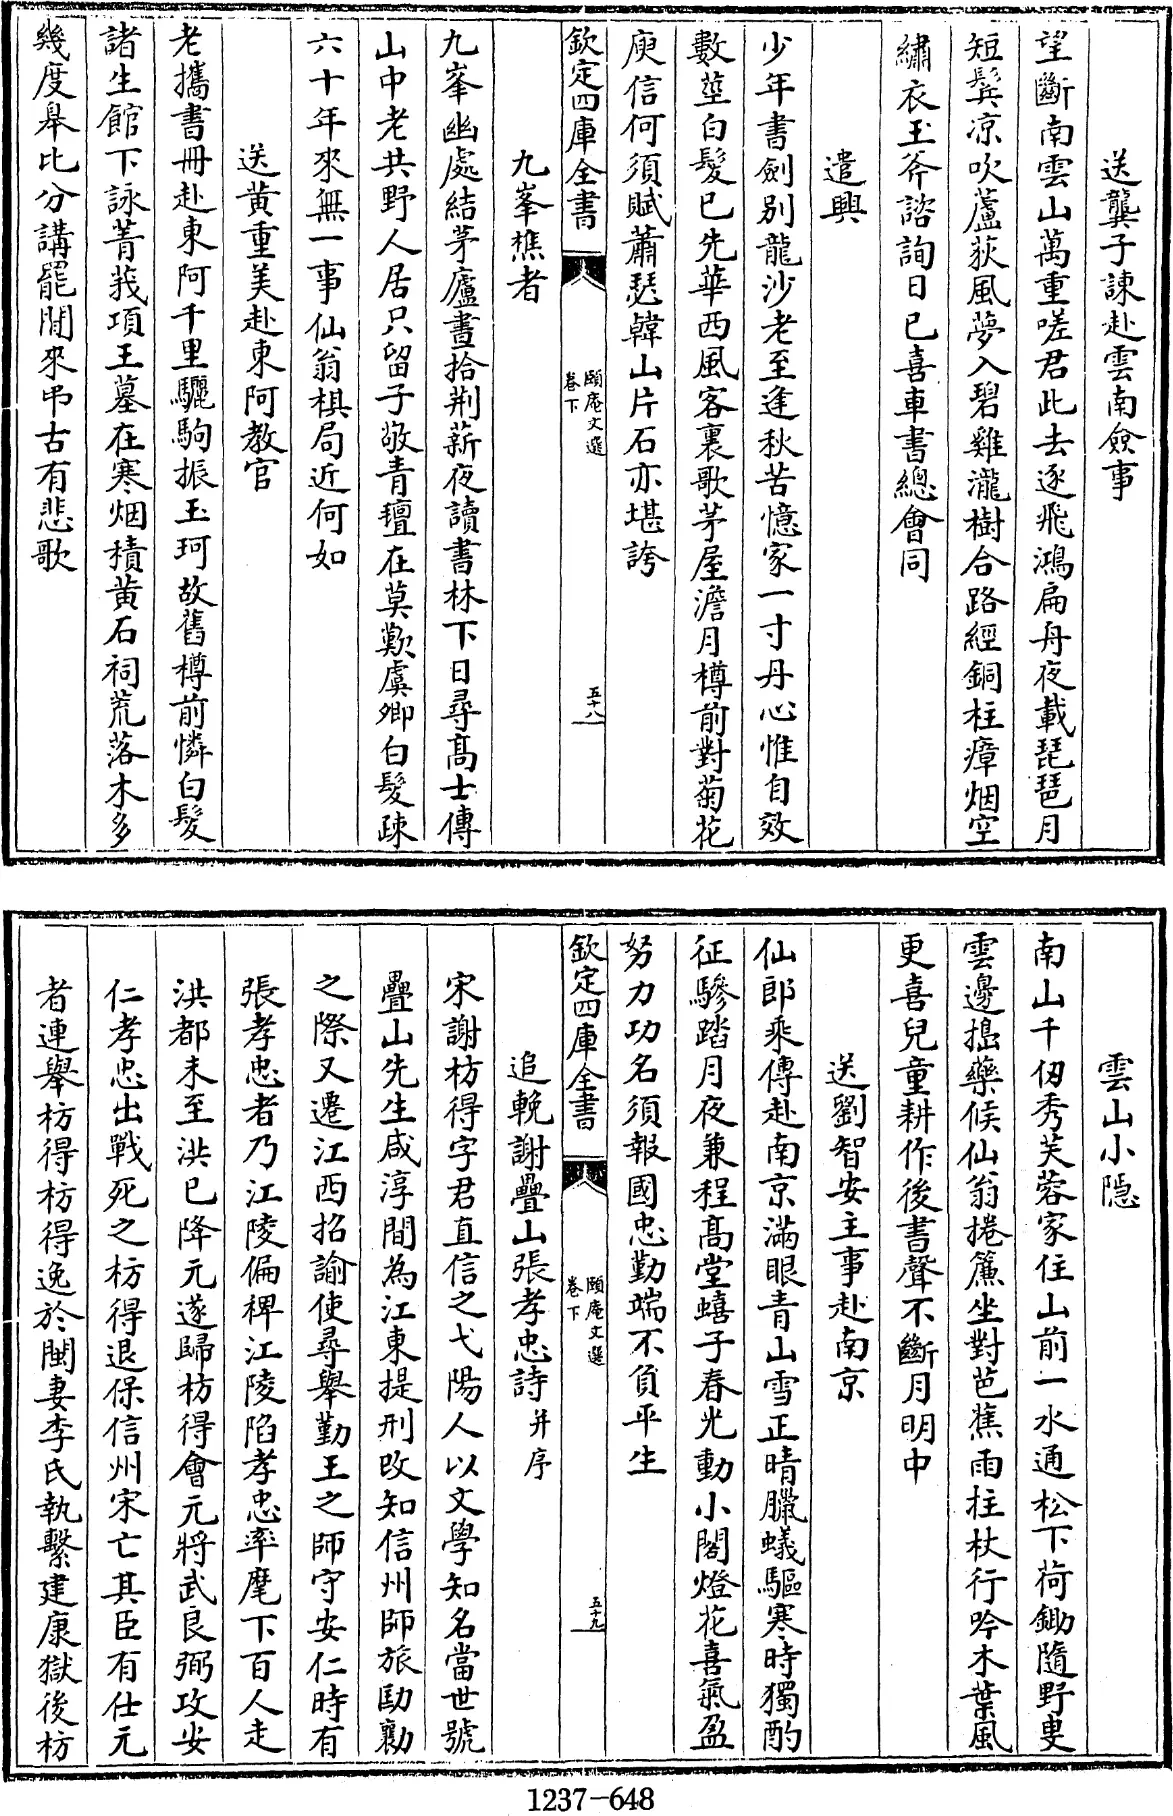 送龔子諫赴雲南僉事
望斷南雲山萬重嗟君此去逐飛鴻扁舟夜載琵琶月
短鬂凉吹蘆荻風夢入碧雞瀧樹合路經銅柱瘴烟空
繡衣玉斧諮詢日已喜車書總會同
遣興
少年書劍别龍沙老至逢秋苦憶家一寸丹心惟自效
數莖白髪已先華西風客裏歌茅屋澹月樽前對菊花
庾信何須賦蕭瑟韓山片石亦堪誇
欽定四庫全書
頤庵文選
卷下
五十八
九峯樵者
九峯幽處結茅廬晝拾荆薪夜讀書林下日尋髙士傳
山中老共野人居只留子敬青氊在莫歎虞卿白髪疎
六十年來無一事仙翁棋局近何如
送黄重美赴東阿教官
老攜書冊赴東阿千里驪駒振玉珂故舊樽前憐白髪
諸生館下詠菁莪項王墓在寒烟積黄石祠荒落木多
幾度皋比分講罷閒來弔古有悲歌
雲山小隠
南山千仭秀芙蓉家住山前一水通松下荷鋤隨野叟
雲邊搗藥候仙翁捲簾坐對芭蕉雨柱杖行吟木葉風
更喜兒童耕作後書聲不斷月明中
送劉智安主事赴南京
仙郎乘傳赴南京滿眼青山雪正晴臘蟻驅寒時獨酌
征驂踏月夜兼程髙堂蟢子春光動小閣燈花喜氣盈
努力功名須報國忠勤端不負平生
欽定四庫全書
頤庵文選
卷下
五十九
追輓謝疊山張孝忠詩并序
宋謝枋得字君直信之弋陽人以文學知名當世號
疊山先生咸淳間為江東提刑改知信州師旅劻勷
之際又遷江西招諭使尋舉勤王之師守安仁時有
張孝忠者乃江陵偏裨江陵陷孝忠率麾下百人走
洪都未至洪已降元遂歸枋得會元將武良弼攻安
仁孝忠出戰死之枋得退保信州宋亡其臣有仕元
者連舉枋得枋得逸於閩妻李氏執繫建康獄後枋
1237-648